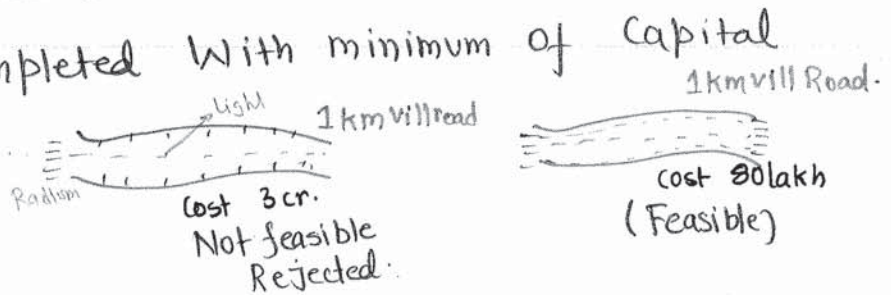 mpleted With minimum of Capital
Light
1km Vill road
Radium
Cost 3 cr.
Not feasible
Rejected.
1km Vill Road.
Cost 80lakh
(Feasible)